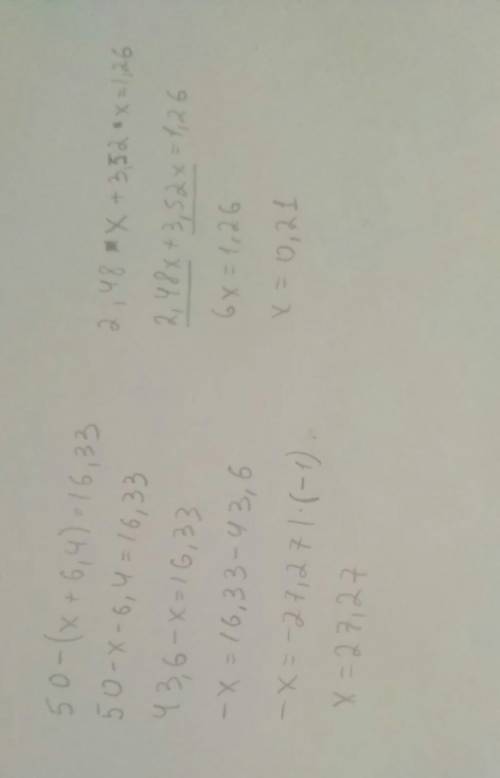 50-(x+6,4)=16,33
50-x-6,4=16,33
43,6-x=16,33
-x=16,33-43,6
-x=-27,27|·(-1)
x=27,27
2,48·x+3,52·x=1,26
2,48x+3,52x=1,26
6x=1,26
x=0,21